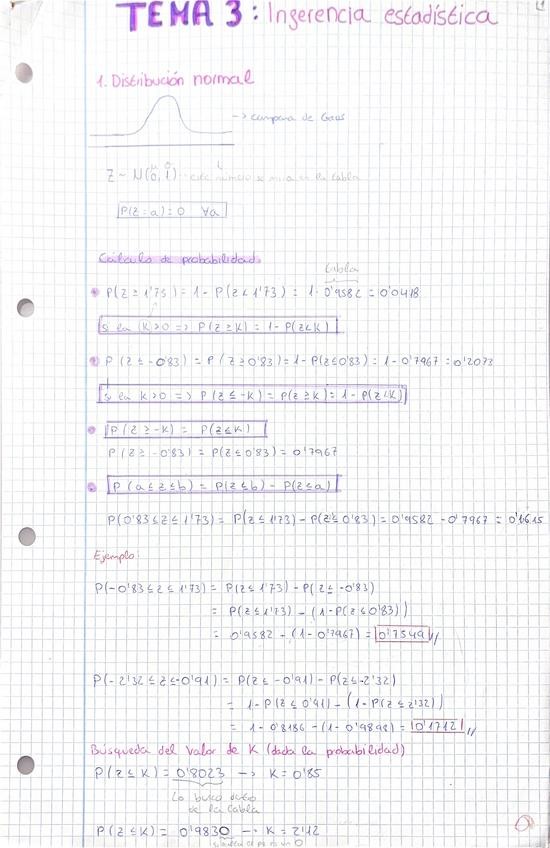 TEMA 3: Ingerencia estadística
1. Distribución normal
-> campana de Gaus
Z ~ N(0, 1) este número se mira en la tabla
P(Z = a) = 0 ∀a
Cálculo de probabilidad.
tabla
P(Z ≥ 1'73) = 1 - P(Z < 1'73) = 1 - 0'9582 = 0'0418
si en (K>0 => P(Z ≥ K) = 1 - P(Z<K)
P(Z ≤ -0'83) = P(Z ≥ 0'83) = 1 - P(Z ≤ 0'83) = 1 - 0'7967 = 0'2033
si en K>0 => P(Z ≤ -K) = P(Z ≥ K) = 1 - P(Z<K)
P(Z ≥ -K) = P(Z ≤ K)
P(Z ≥ -0'83) = P(Z ≤ 0'83) = 0'7967
P(a ≤ Z ≤ b) = P(Z ≤ b) - P(Z ≤ a)
P(0'83 ≤ Z ≤ 1'73) = P(Z ≤ 1'73) - P(Z ≤ 0'83) = 0'9582 - 0'7967 = 0'1615
Ejemplo:
P(-0'83 ≤ Z ≤ 1'73) = P(Z ≤ 1'73) - P(Z ≤ -0'83)
= P(Z ≤ 1'73) - (1 - P(Z ≤ 0'83))
= 0'9582 - (1 - 0'7967) = 0'7549
P(-2'32 ≤ Z ≤ -0'91) = P(Z ≤ -0'91) - P(Z ≤ -2'32)
= 1 - P(Z ≤ 0'91) - (1 - P(Z ≤ 2'32))
= 1 - 0'8186 - (1 - 0'9898) = 0'1712
Búsqueda del valor de K (dada la probabilidad)
P(Z ≤ K) = 0'8023 -> K = 0'85
Lo busco dentro
de la tabla
P(Z ≤ K) = 0'9830 -> K = 2'12